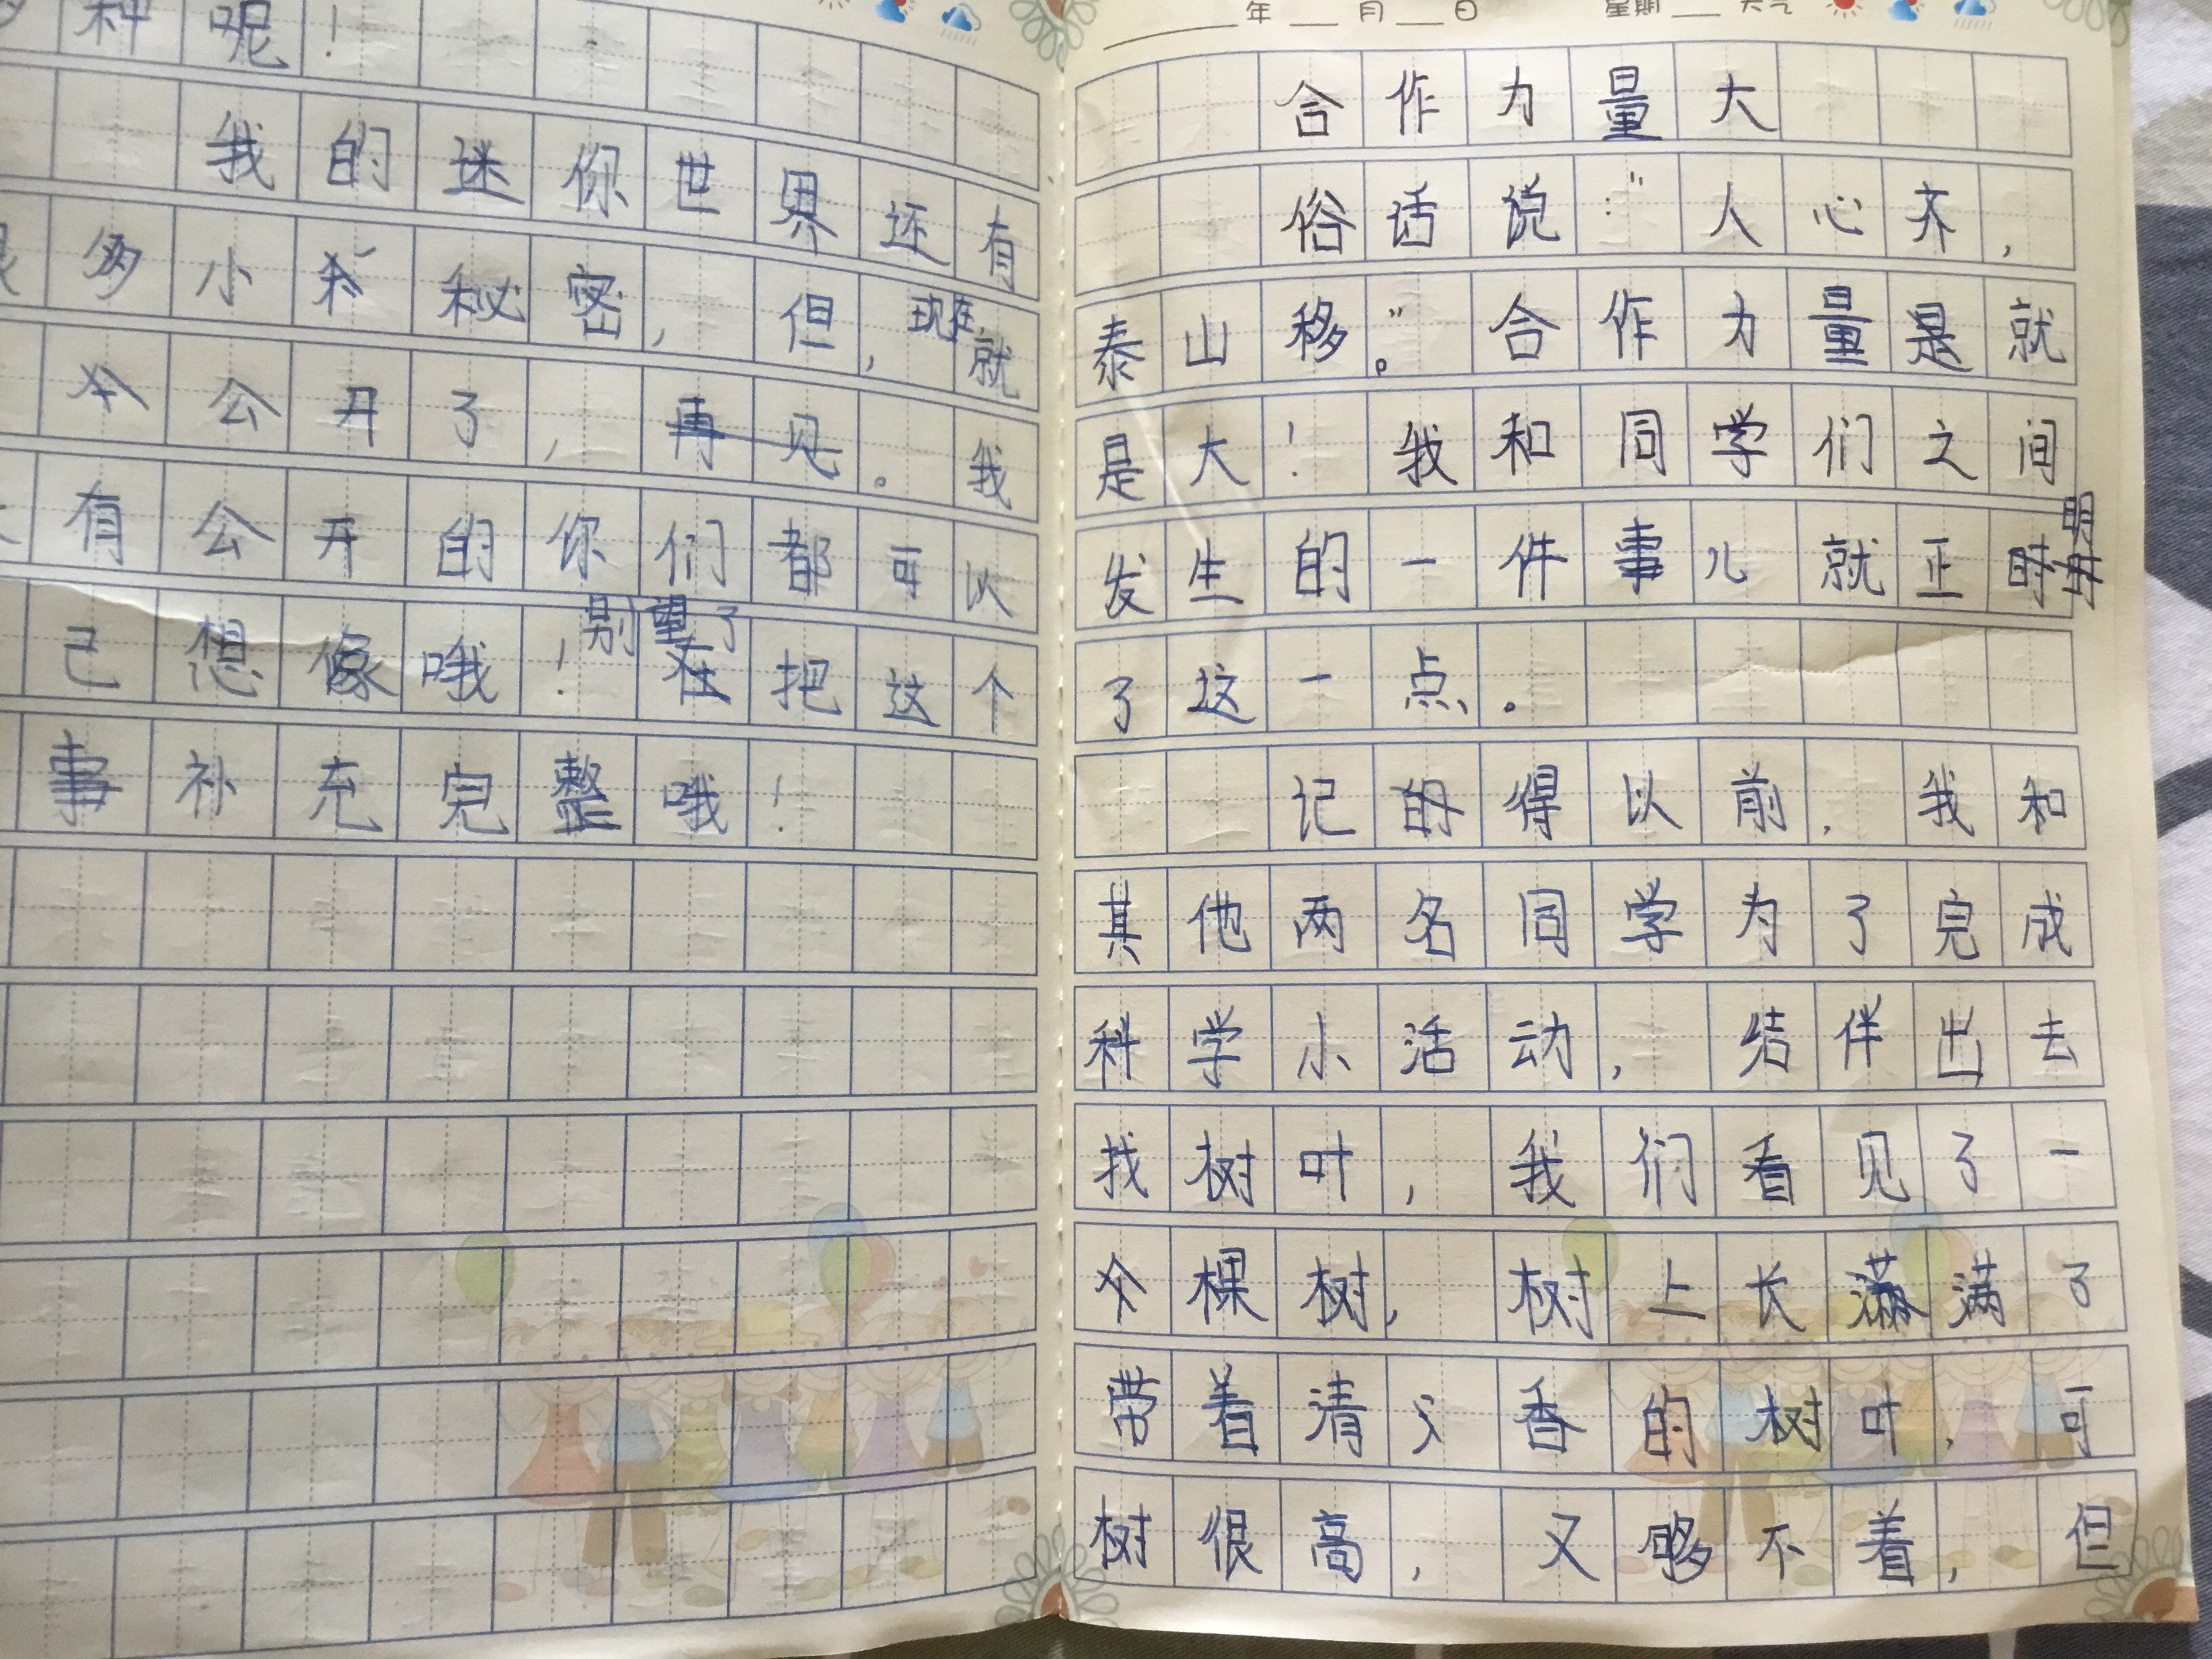 种呢！
我的迷你世界还有
多小秘密，但，现在就
公开了，再见。我
有公开的你们都可以
己想像哦！别望了在把这个
事补充完整哦！
年 月 日 星期 天气
合作力量大
俗话说：“人心齐，
泰山移。”合作力量是就
是大！我和同学们之间
发生的一件事儿就正明
了这一点。
记的得以前，我和
其他两名同学为了完成
科学小活动，结伴出去
找树叶，我们看见了一
个棵树，树上长满满了
带着清香的树叶，可
树很高，又够不着，但